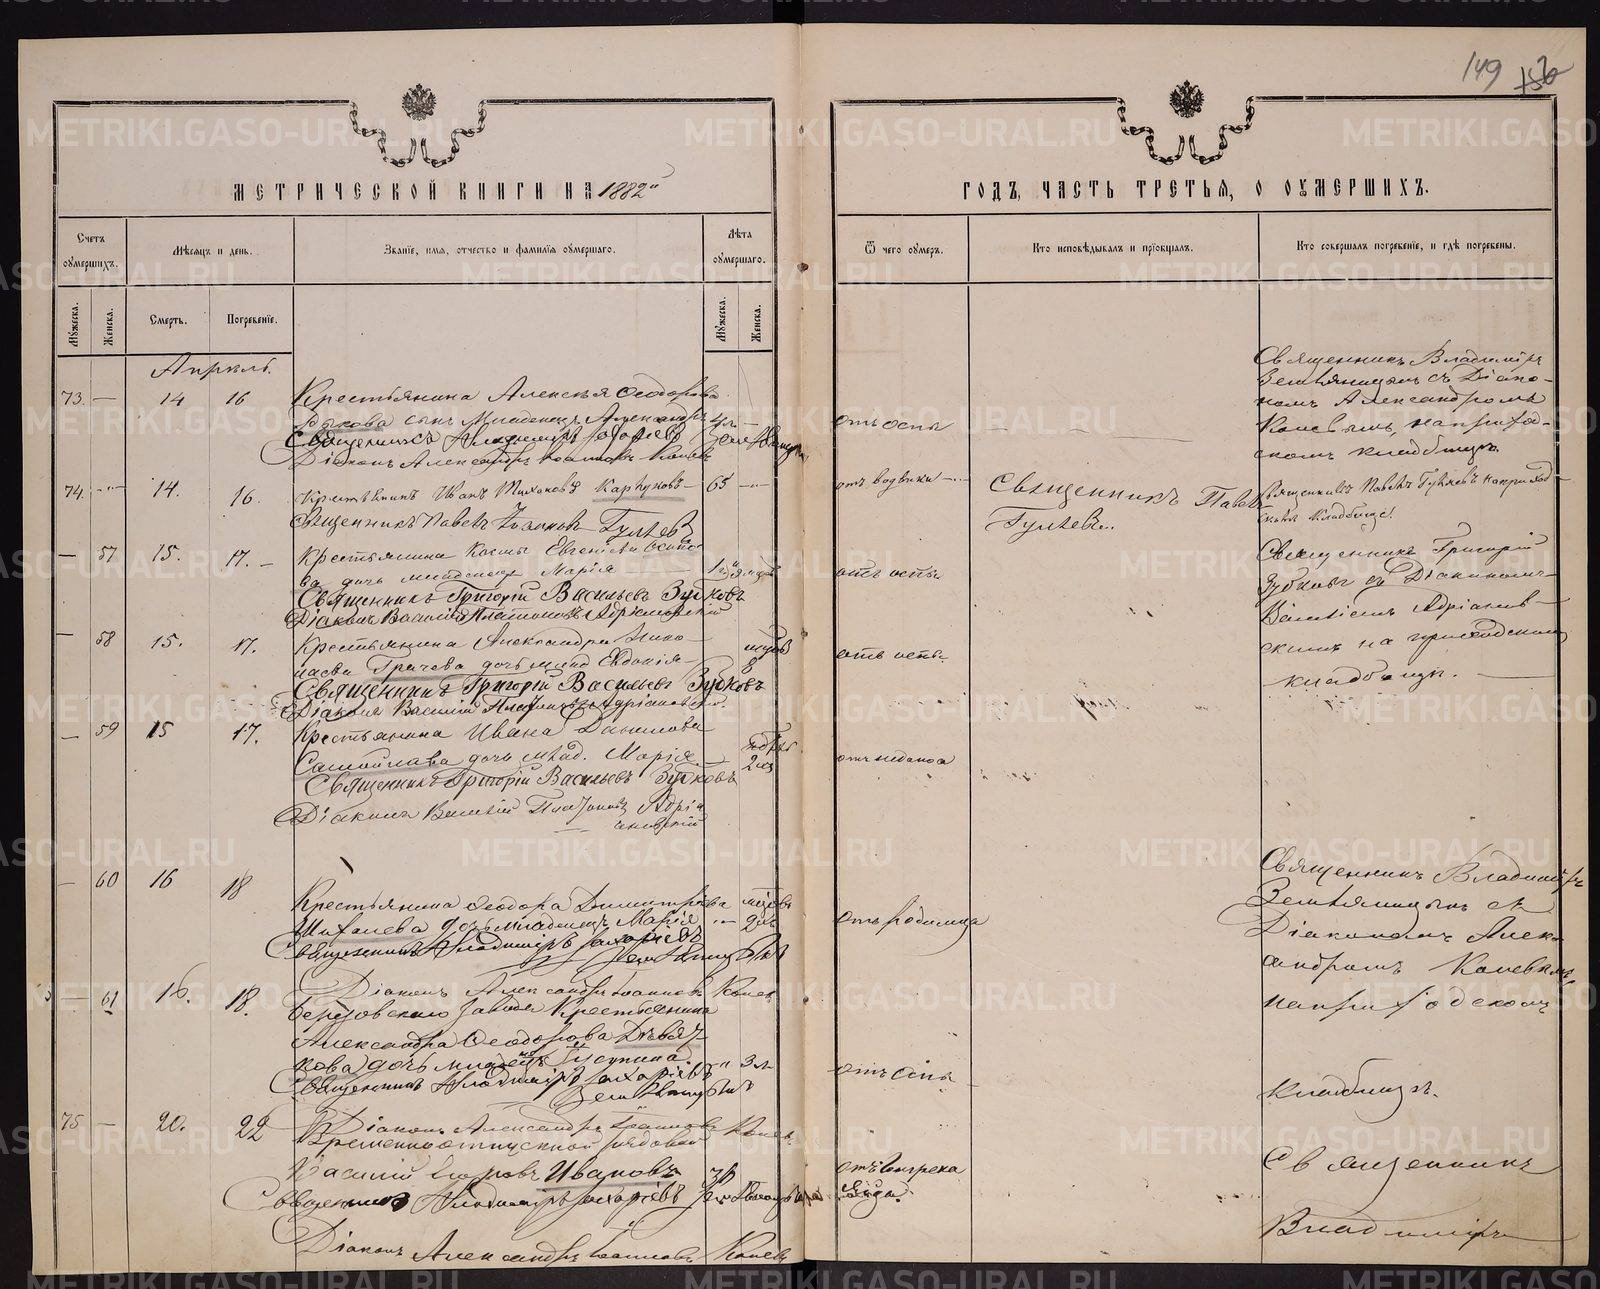 149
МЕТРИЧЕСКОЙ КНИГИ НА 1882й
ГОДЪ, ЧАСТЬ ТРЕТЬЯ, О ОУМЕРШИХЪ.
Счетъ оумершихъ.
Мѣсяцъ и день.
Званіе, имя, отчество и фамилія оумершаго.
Лѣта оумершаго.
Ѿ чего оумеръ.
Кто исповѣдывалъ и пріобщалъ.
Кто совершалъ погребеніе, и гдѣ погребены.
Мужеска.
Женска.
Смерть.
Погребеніе.
Мужеска.
Женска.
Апрѣль.
73. — 14 16
Крестьянина Алексѣя Ѳеодорова
Рыкова сынъ Младенецъ Александръ
Священникъ Владиміръ Захаріевъ
Діаконъ Александръ Іоанновъ Коневъ
отъ оспы
Священникъ Владиміръ
Земляницынъ съ Діако-
номъ Александромъ
Коневымъ, на приход-
скомъ кладбищѣ.
74. 14. 16.
Крестьянинъ Иванъ Тихоновъ Карпуковъ 65
Священникъ Павелъ Гуляевъ
отъ водянки
Священникъ Павелъ
Гуляевъ.
Священникъ Павелъ Гуляевъ на приход-
скомъ кладбищѣ.
— 57 15. 17.
Крестьянина Космы Евгеніева
ва дочь младенецъ Марія
Священникъ Григорій Васильевъ Зубковъ
Діаконъ Василій Платоновъ Адріановскій
отъ оспы
Священникъ Григорій
Зубковъ съ Діакономъ
Василіемъ Адріанов-
скимъ на приходскомъ
кладбищѣ.
— 58 15. 17.
Крестьянина Александра Нико-
лаева Грачева дочь млад. Евдокія
мѣсяцъ 8
Священникъ Григорій Васильевъ Зубковъ
Діаконъ Василій Платоновъ Адріановскій
отъ оспы.
— 59 15 17.
Крестьянина Ивана Данилова
Самойлава дочь млад. Марія
2
Священникъ Григорій Васильевъ Зубковъ
Діаконъ Василій Платоновъ Адріа
новскій
— 60 16 18
Крестьянина Ѳеодора Димитріева
Михалева дочь младенецъ Марія
Священникъ Владиміръ Захаріевъ
Діаконъ Александръ Іоанновъ Коневъ
отъ родимца
Священникъ Владиміръ
Земляницынъ съ
Діакономъ Алек-
сандромъ Коневымъ
на приходскомъ
кладбищѣ.
— 61 16. 18.
Березовскаго завода Крестьянина
Александра Ѳеодорова Девят-
кова дочь младенецъ Іустина
3
Священникъ Владиміръ Захаріевъ
Діаконъ Александръ Іоанновъ Коневъ
отъ оспы
75 — 20. 22
Временно отпускной рядовой
Василій Егоровъ Ивановъ 36
Священникъ Владиміръ Захаріевъ
Діаконъ Александръ Іоанновъ Коневъ
Священникъ
Владиміръ
METRIKI.GASO-URAL.RU